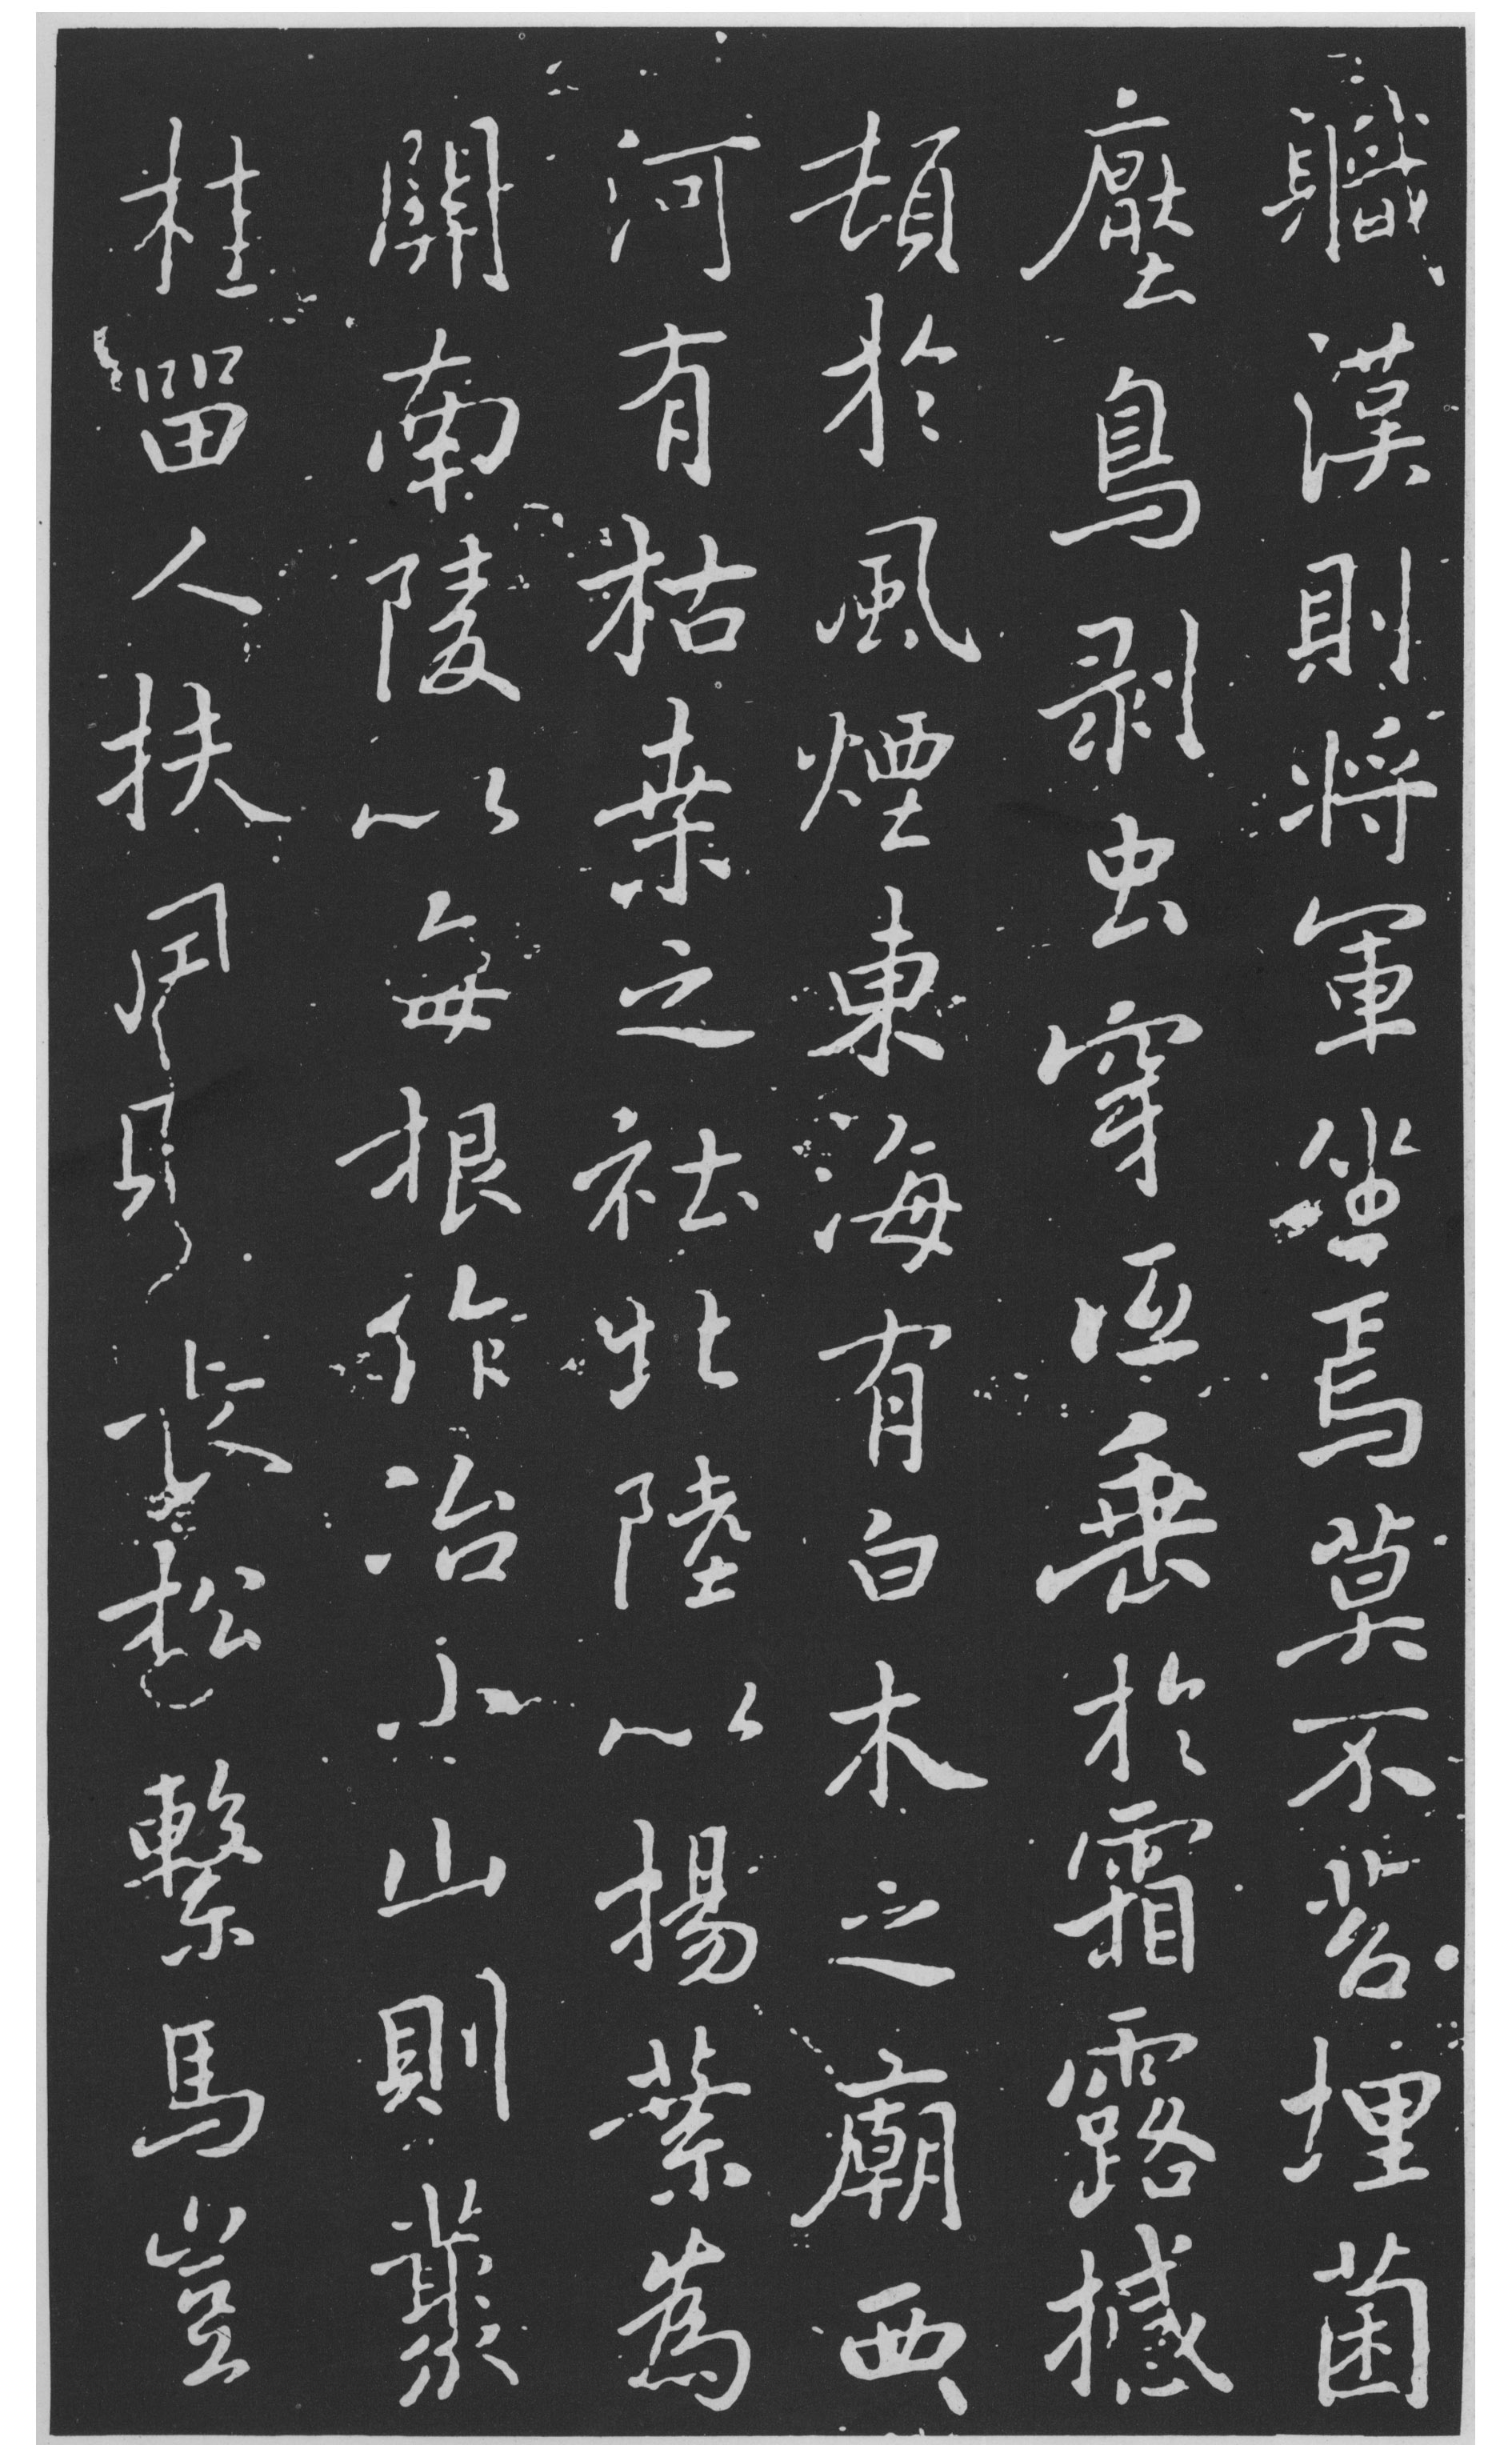 職漢則將軍坐焉莫不苔埋菌
壓鳥剥虫穿仾垂於霜露撼
頓於風煙東海有白木之廟西
河有枯桒之社北陸以揚葉為
關南陵以每根作冶小山則叢
桂留人扶風則長松繫馬豈